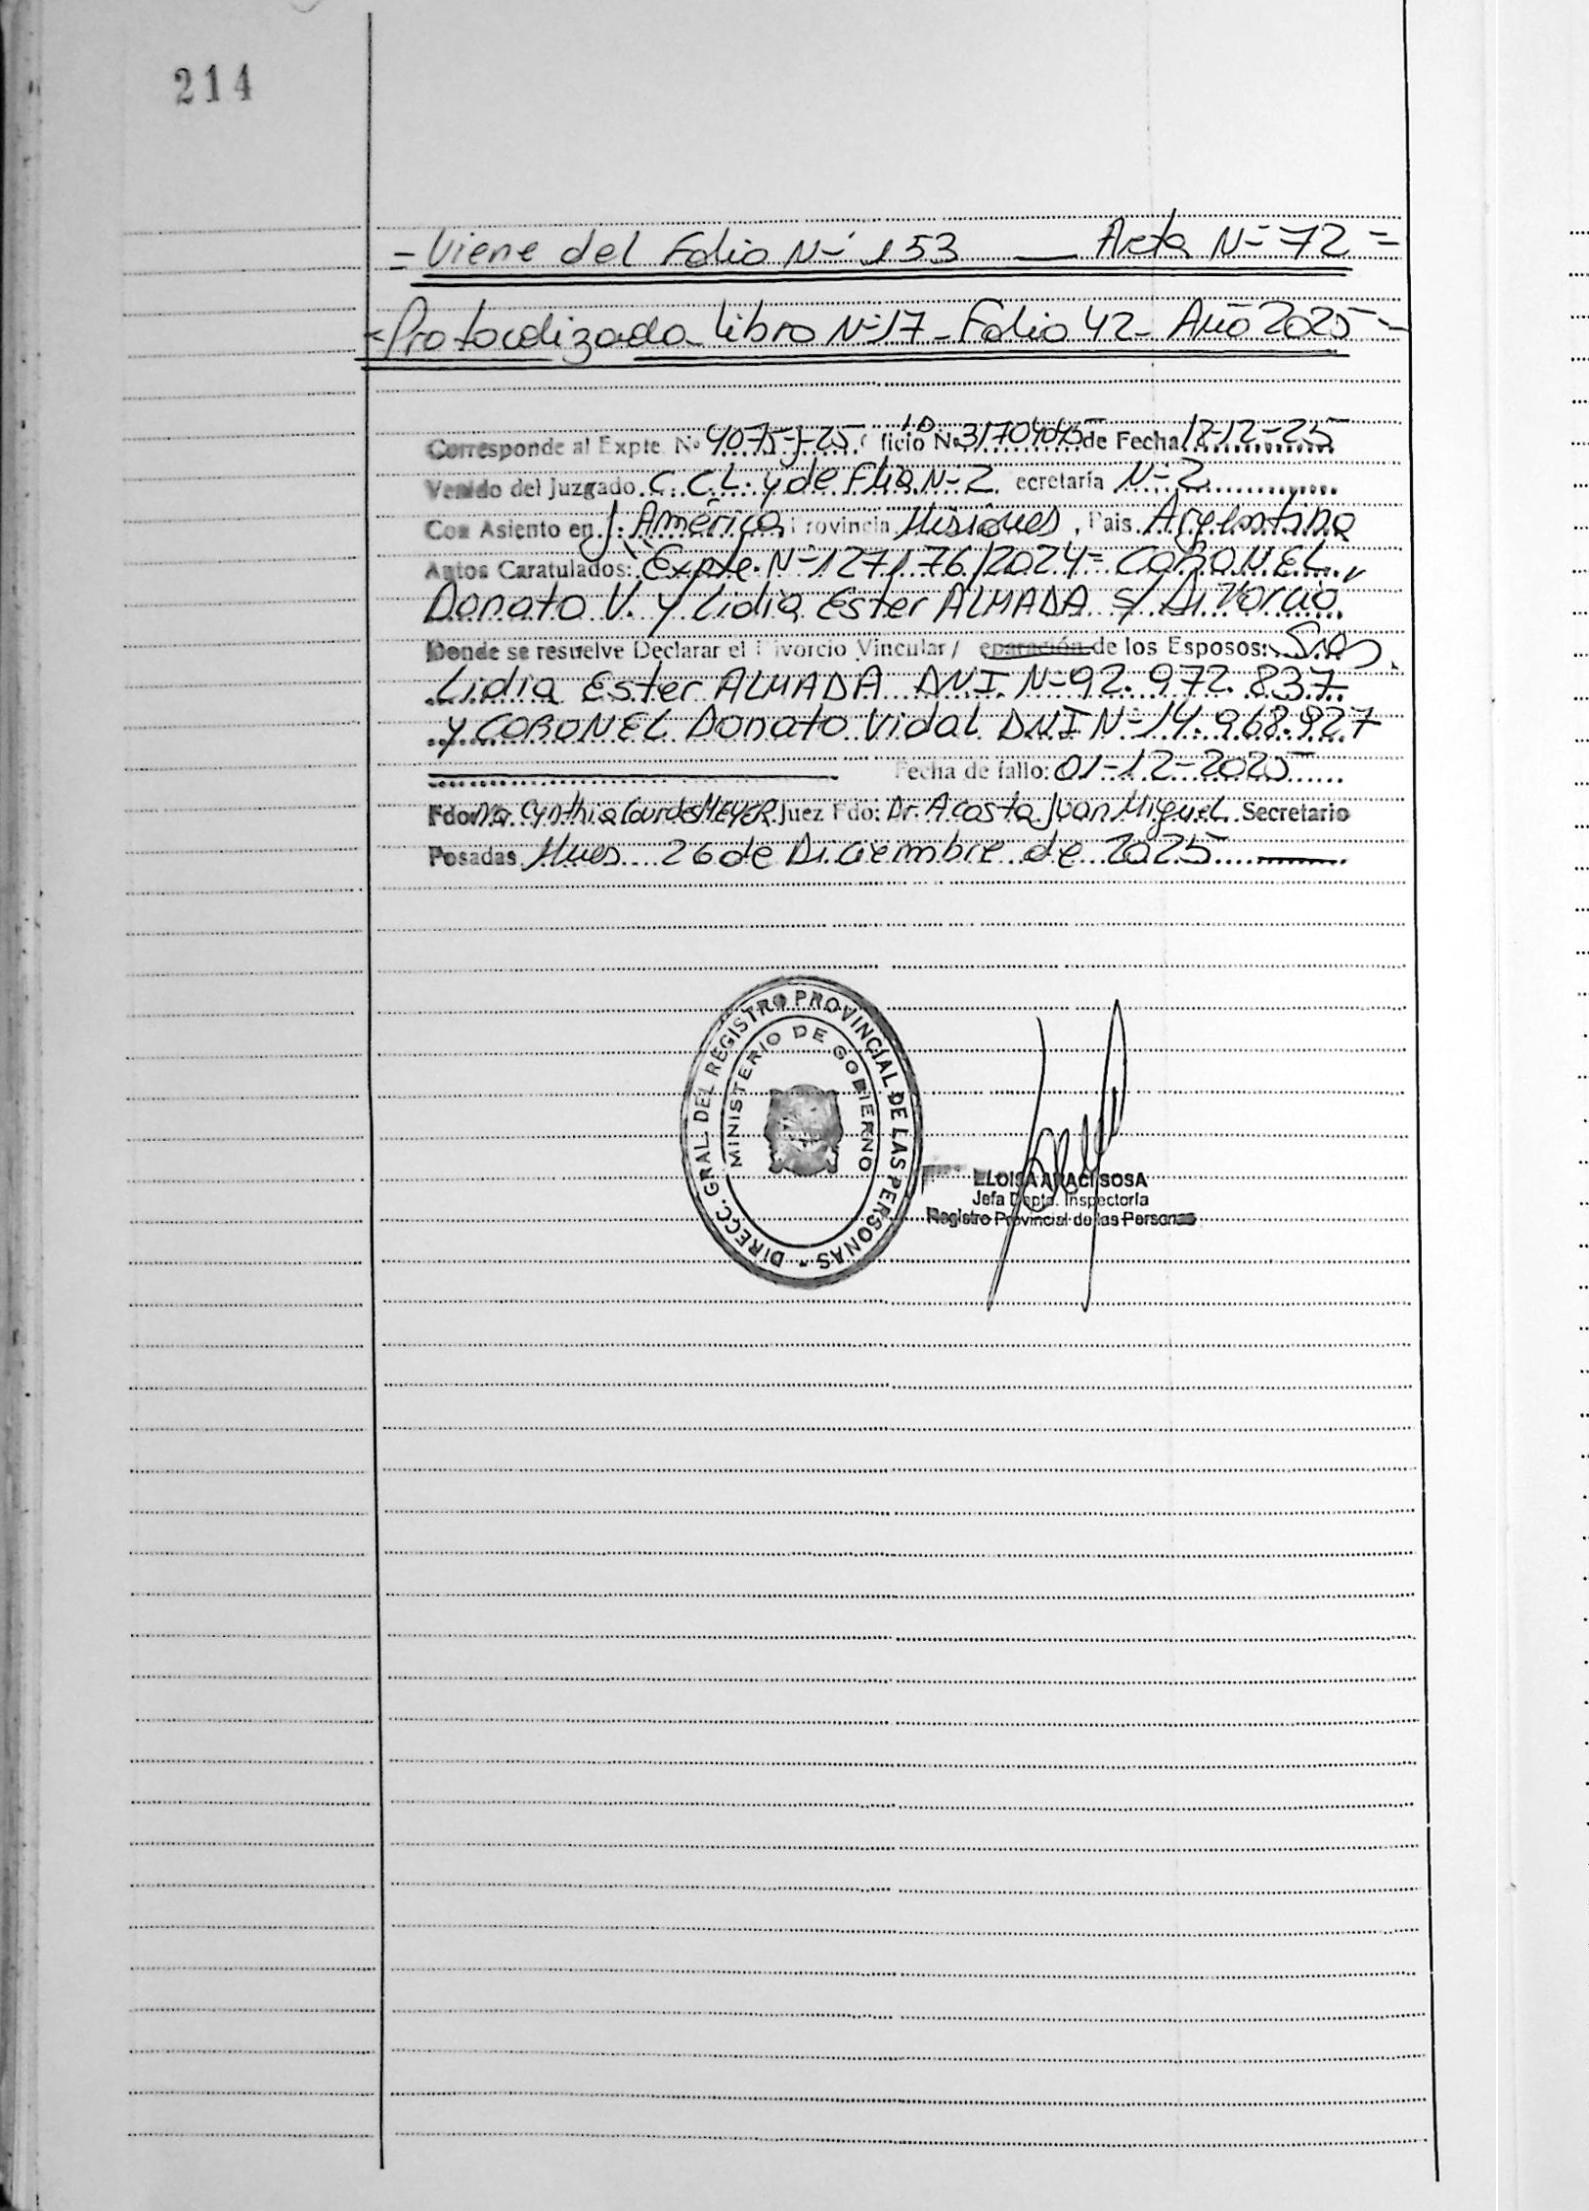 214
= Viene del Folio N- 153 — Acta N- 72 =
- Protocolizado libro N-17 - Folio 42 - Año 2025 -
Corresponde al Expte. No 4075-J-25 ficio No 3170404 de Fecha 12-12-25
Venido del Juzgado C.C.L. y de Flia N-2 ecretaria N-2
Con Asiento en J. América Provincia Misiones, Pais Argentina
Autos Caratulados: Expte. N-127176/2024- CORONEL
Donato V. y Lidia Ester ALMADA s/ Divorcio
Donde se resuelve Declarar el Divorcio Vincular / eparación de los Esposos: Sres.
Lidia Ester ALMADA DNI N-92.972.837
y CORONEL Donato Vidal DNI N-14.968.927
Fecha de fallo: 01-12-2025
Fdo Cynthia Lourdes MEYER Juez Fdo: Dr. Acosta Juan Miguel Secretario
Posadas Mnes 26 de Diciembre de 2025
DIRECC. GRAL. DEL REGISTRO PROVINCIAL DE LAS PERSONAS -
MINISTERIO DE GOBIERNO
ELOISA ARACI SOSA
Jefa Dpto. Inspectoría
Registro Provincial de las Personas